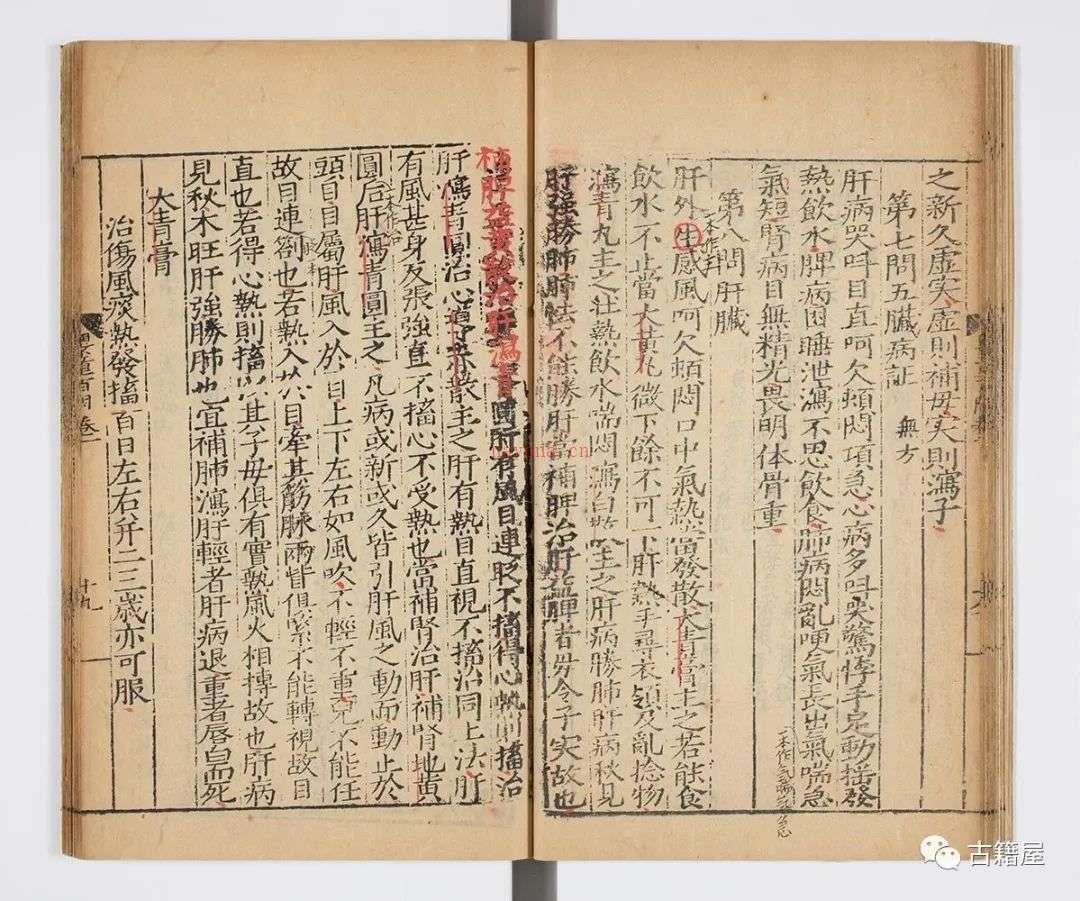 之新久虛实虛則補母实則瀉子
第七問五臟病証 無方
肝病哭叫目直呵欠頓悶項急心病多叫哭驚悸手足動揺發
熱飲水脾病困睡泄瀉不思飲食肺病悶亂哽氣長出氣喘急
一本作氣
氣短腎病目無精光畏明体骨重
第八問肝臟
一本作
肝外生感風呵欠頓悶口中氣熱當發散大青膏主之若能食
飲水不止當大黄丸微下餘不可下肝熱手尋衣領及亂捻物
瀉青丸主之壮熱飲水喘悶瀉白散主之肝病勝肺肝病秋見
肝強勝肺肺怯不能勝肝當補脾治肝益脾者母令子实故也
補脾益黄散治肝瀉青圎肝有風目連眨不搐得心熱則搐治
肝瀉青圓治心導赤散主之肝有熱目直視不搐治同上法肝
有風甚身反張強直不搐心不受熱也當補腎治肝補腎地黄
一本作治
圓后肝瀉青圓主之凡病或新或久皆引肝風之動而動止於
頭目目屬肝風入於目上下左右如風吹不輕不重兒不能任
故目連劄也若熱入於目牽其筋脉兩眥俱緊不能轉視故目
直也若得心熱則搐以其子母俱有實熱風火相搏故也肝病
見秋木旺肝強勝肺也宜補肺瀉肝輕者肝病退重者唇白而死
大青膏
治傷風痰熱發搐百日左右并二三歲亦可服
百問卷二
十九
古籍屋